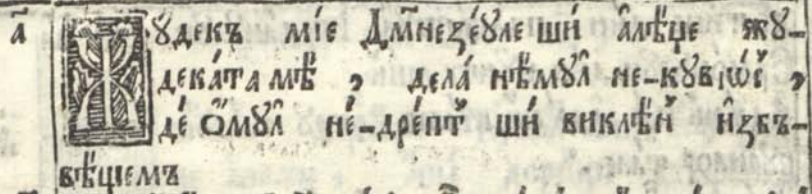 а҃ Жꙋдекъ мїе Дм҃незе́ꙋле ши́ а̂лѣ́ѱе жꙋ-
дека́та мѣ̀ , дела́ нѣ́мꙋл̾ не-кꙋвїѡ́с ,
де́ ѻ҆́мꙋл̾ не́-дрепт̾ ши́ виклѣ́н̾ и҆збъ-
вѣ́щемъ